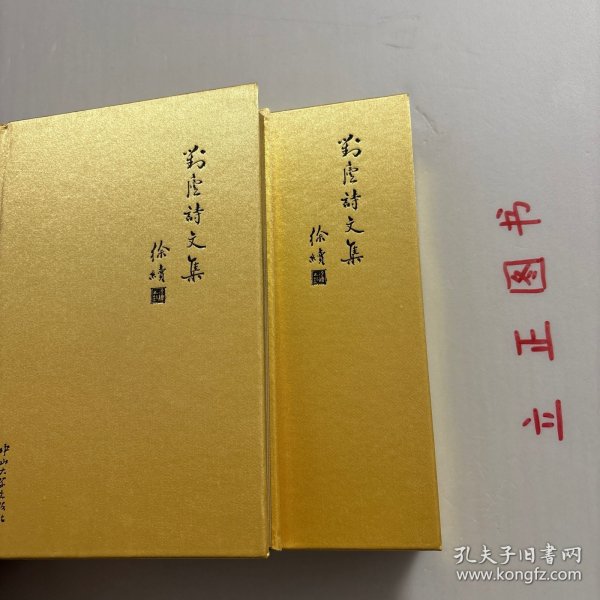 劉逸詩文集
徐續
中山大学出版社
劉逸詩文集
徐續
立正图书
孔夫子旧书网
www.kongfz.com